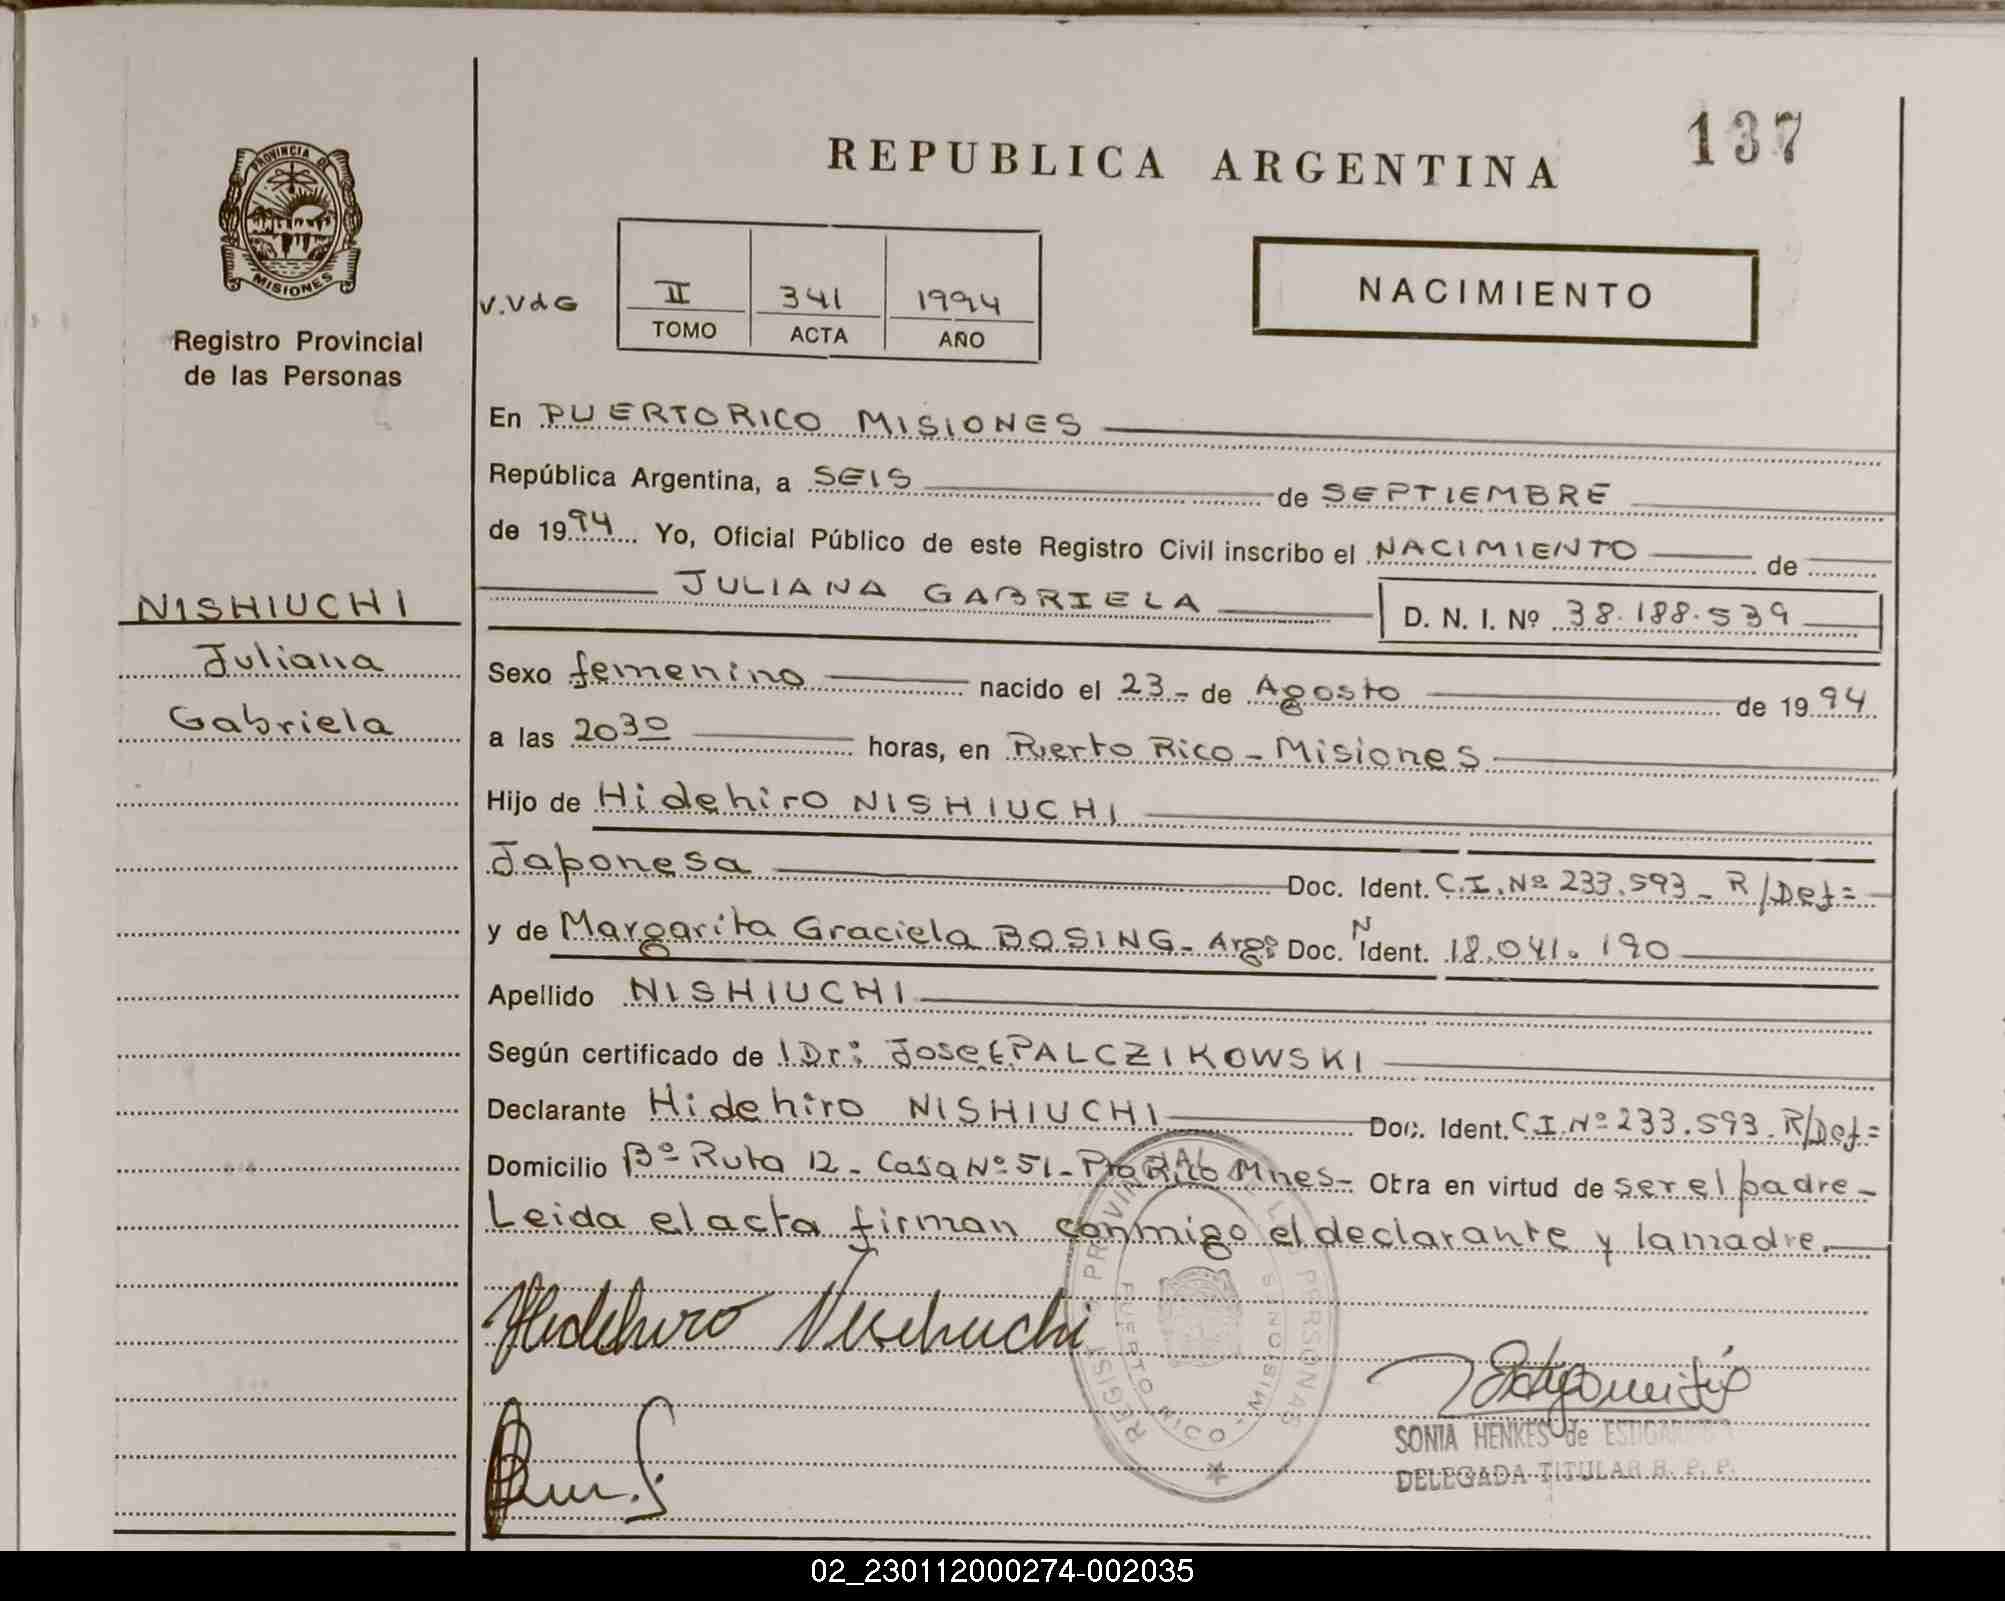 137
REPUBLICA ARGENTINA
PROVINCIA DE
MISIONES
Registro Provincial
de las Personas
V.VdG
II 341 1994
TOMO ACTA AÑO
NACIMIENTO
En PUERTO RICO MISIONES
República Argentina, a SEIS de SEPTIEMBRE
de 1994 Yo, Oficial Público de este Registro Civil inscribo el NACIMIENTO de
JULIANA GABRIELA D. N. I. Nº 38.188.539
NISHIUCHI
Juliana
Gabriela
Sexo femenino nacido el 23- de Agosto de 1994
a las 2030 horas, en Puerto Rico - Misiones
Hijo de Hidehiro NISHIUCHI
Japonesa Doc. Ident. C.I. Nº 233.593 - R/Def=
y de Margarita Graciela BOSING - Argº Doc. N Ident. 18.041.190
Apellido NISHIUCHI
Según certificado de Dr: Jose PALCZIKOWSKI
Declarante Hidehiro NISHIUCHI Doc. Ident. C.I. Nº 233.593. R/Def=
Domicilio Bº Ruta 12 - Casa Nº 51 - Pto Rico Mnes - Otra en virtud de ser el padre -
Leida el acta firman conmigo el declarante y la madre.
Hidehiro Nischuchi
REGISTRO PROVINCIAL DE LAS PERSONAS
PUERTO RICO - MISIONES
SONIA HENKES de
DELEGADA TITULAR R. P. P.
02_230112000274-002035